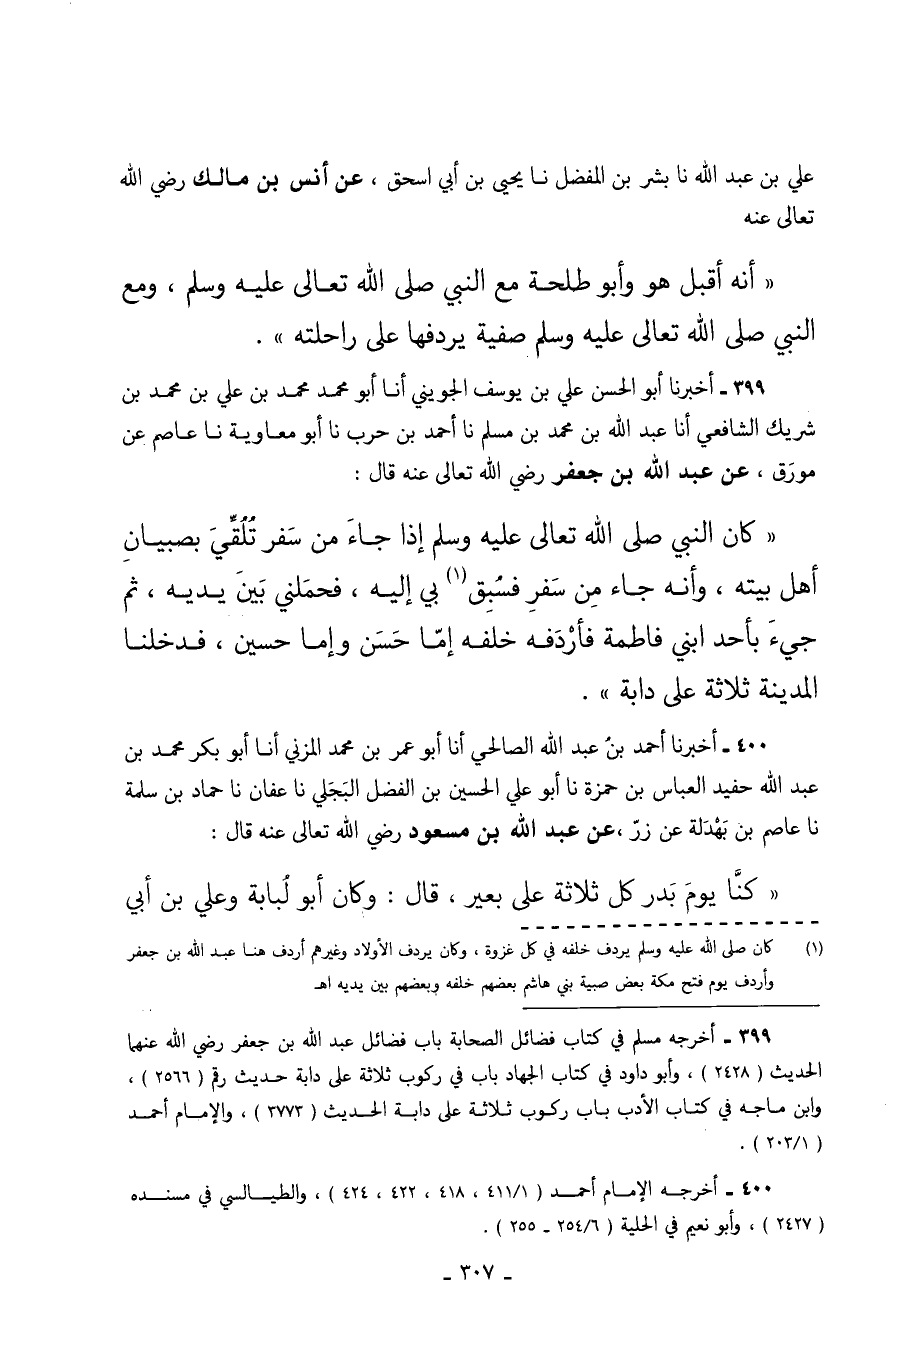 علي بن عبد الله نا بشر بن المفضل نـا يحيى بن أبي اسحق ، عن أنس بن مـالـك رضي الله
تعالى عنه
« أنه أقبل هو وأبو طلحـة مع النبي صلى الله تعـالى عليـه وسلم ، ومع
النبي صلى الله تعالى عليه وسلم صفية يردفها على راحلته » .
٣٩٩ ـ أخبرنا أبو الحسن علي بن يوسف الجويني أنـا أبو محمد محمد بن علي بن محمد بن
شريك الشافعي أنا عبد الله بن محمد بن مسلم نا أحمد بن حرب نا أبو معـاويـة نـا عـاصم عن
مورَق ، عن عبد الله بن جعفر رضي الله تعالى عنه قال :
« كان النبي صلى الله تعالى عليه وسلم إذا جـاءَ من سَفر تُلُقِّيَ بصبيـانِ
أهل بيته ، وأنـه جـاء مِن سَفرِ فسُبِق(١) بي إليـه ، فحمَلني بَينَ يـديـه ، ثم
جيءَ بأحد ابني فاطمة فأرْدَفـه خلفـه إمّـا حَسَن وإمـا حسين ، فـدخلنـا
المدينة ثلاثة على دابة » .
٤٠٠ ـ أخبرنا أحمد بنُ عبد الله الصالحي أنا أبو عمر بن محمد المزني أنـا أبو بكر محمـد بن
عبد الله حفيد العباس بن حمزة نا أبو علي الحسين بن الفضل البَجَلي نا عفان نا حماد بن سلمة
نا عاصم بن بَهْدَلة عن زرّ ،عن عبد الله بن مسعود رضي الله تعالى عنه قال :
« كنَّا يومَ بَدر كل ثلاثة على بعير ، قال : وكان أبو لُبابة وعلي بن أبي
(١) كان صلى الله عليه وسلم يردف خلفه في كل غزوة ، وكان يردف الأولاد وغيرهم أردف هنـا عبـد الله بن جعفر
وأردف يوم فتح مكة بعض صبية بني هاشم بعضهم خلفه وبعضهم بين يديه اهـ
٣٩٩ ـ أخرجه مسلم في كتاب فضائل الصحابة باب فضائل عبد الله بن جعفر رضي الله عنهما
الحديث ( ٢٤٢٨ ) ، وأبو داود في كتاب الجهاد باب في ركوب ثلاثة على دابة حـديث رقم ( ٢٥٦٦ ) ،
وابن مـاجـه في كتـاب الأدب بـاب ركـوب ثـلاثـة على دابـة الحـديث ( ٣٧٧٣ ) ، والإمـام أحمـد
( ٢٠٣/١ ) .
٤٠٠ ـ أخرجـه الإمـام أحمـد ( ٤١١/١ ، ٤١٨ ، ٤٢٢ ، ٤٢٤ ) ، والطيـالسي في مسنـده
( ٢٤٢٧ ) ، وأبو نعيم في الحلية ( ٢٥٤/٦ ـ ٢٥٥ ) .
ـ ٣٠٧ ـ